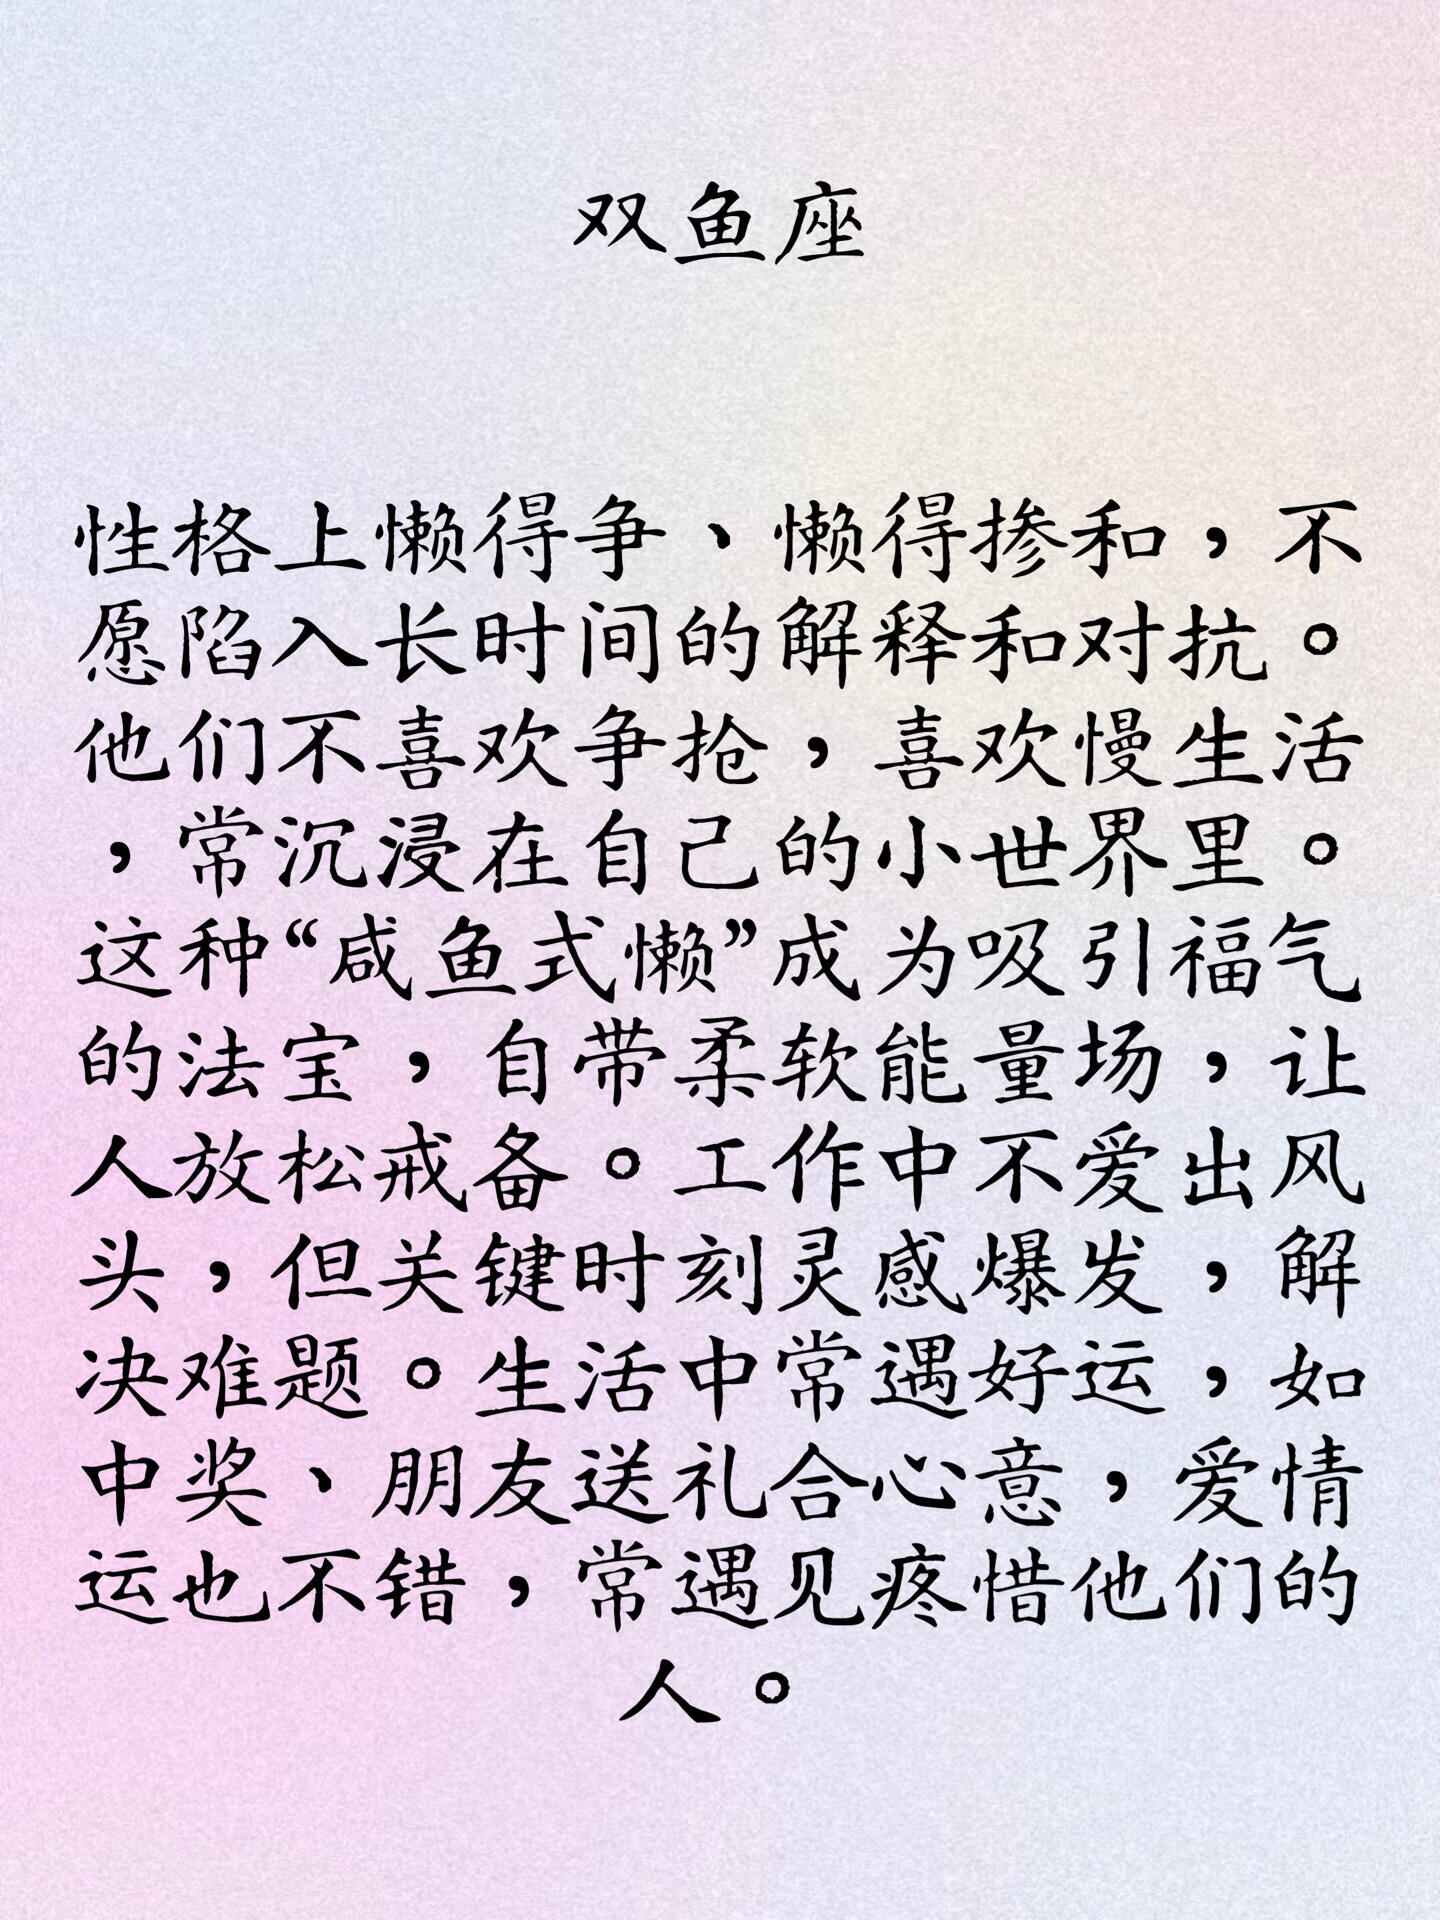 双鱼座
性格上懒得争、懒得掺和，不
愿陷入长时间的解释和对抗。
他们不喜欢争抢，喜欢慢生活
，常沉浸在自己的小世界里。
这种“咸鱼式懒”成为吸引福气
的法宝，自带柔软能量场，让
人放松戒备。工作中不爱出风
头，但关键时刻灵感爆发，解
决难题。生活中常遇好运，如
中奖、朋友送礼合心意，爱情
运也不错，常遇见疼惜他们的
人。